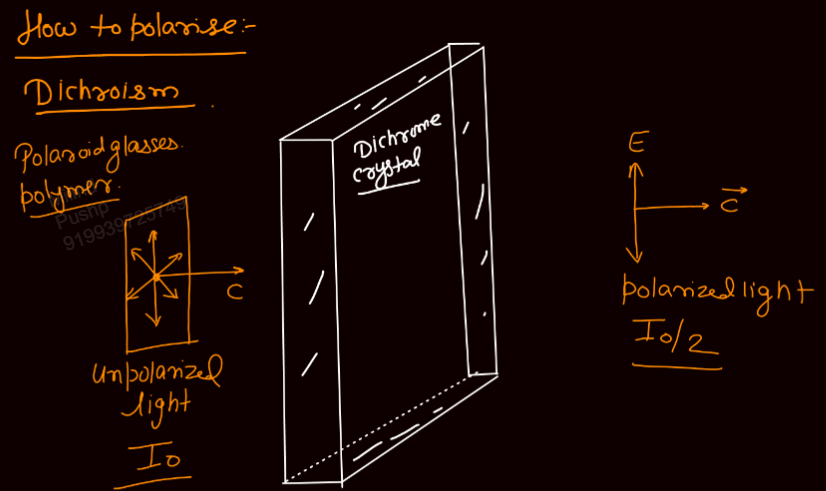 How to polarise:-
Dichroism
Polaroid glasses.
polymer.
Pushp
919939725749
C
Unpolarized
light
I0
Dichrome
crystal
E
C
polarized light
I0/2